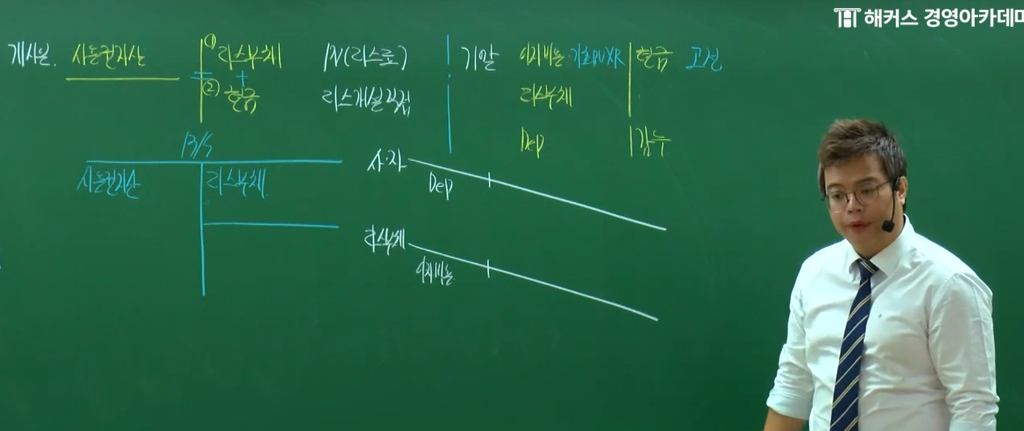 해커스 경영아카데미
개시일. 사용권자산 ① 리스부채 PV(리스료) 기말 이자비용 기초PV×R 현금 고정
+
② 현금 리스개설직접 리스부채
Dep 감누
B/S
사용권자산 리스부채
사·자
Dep
리스부채
이자비용